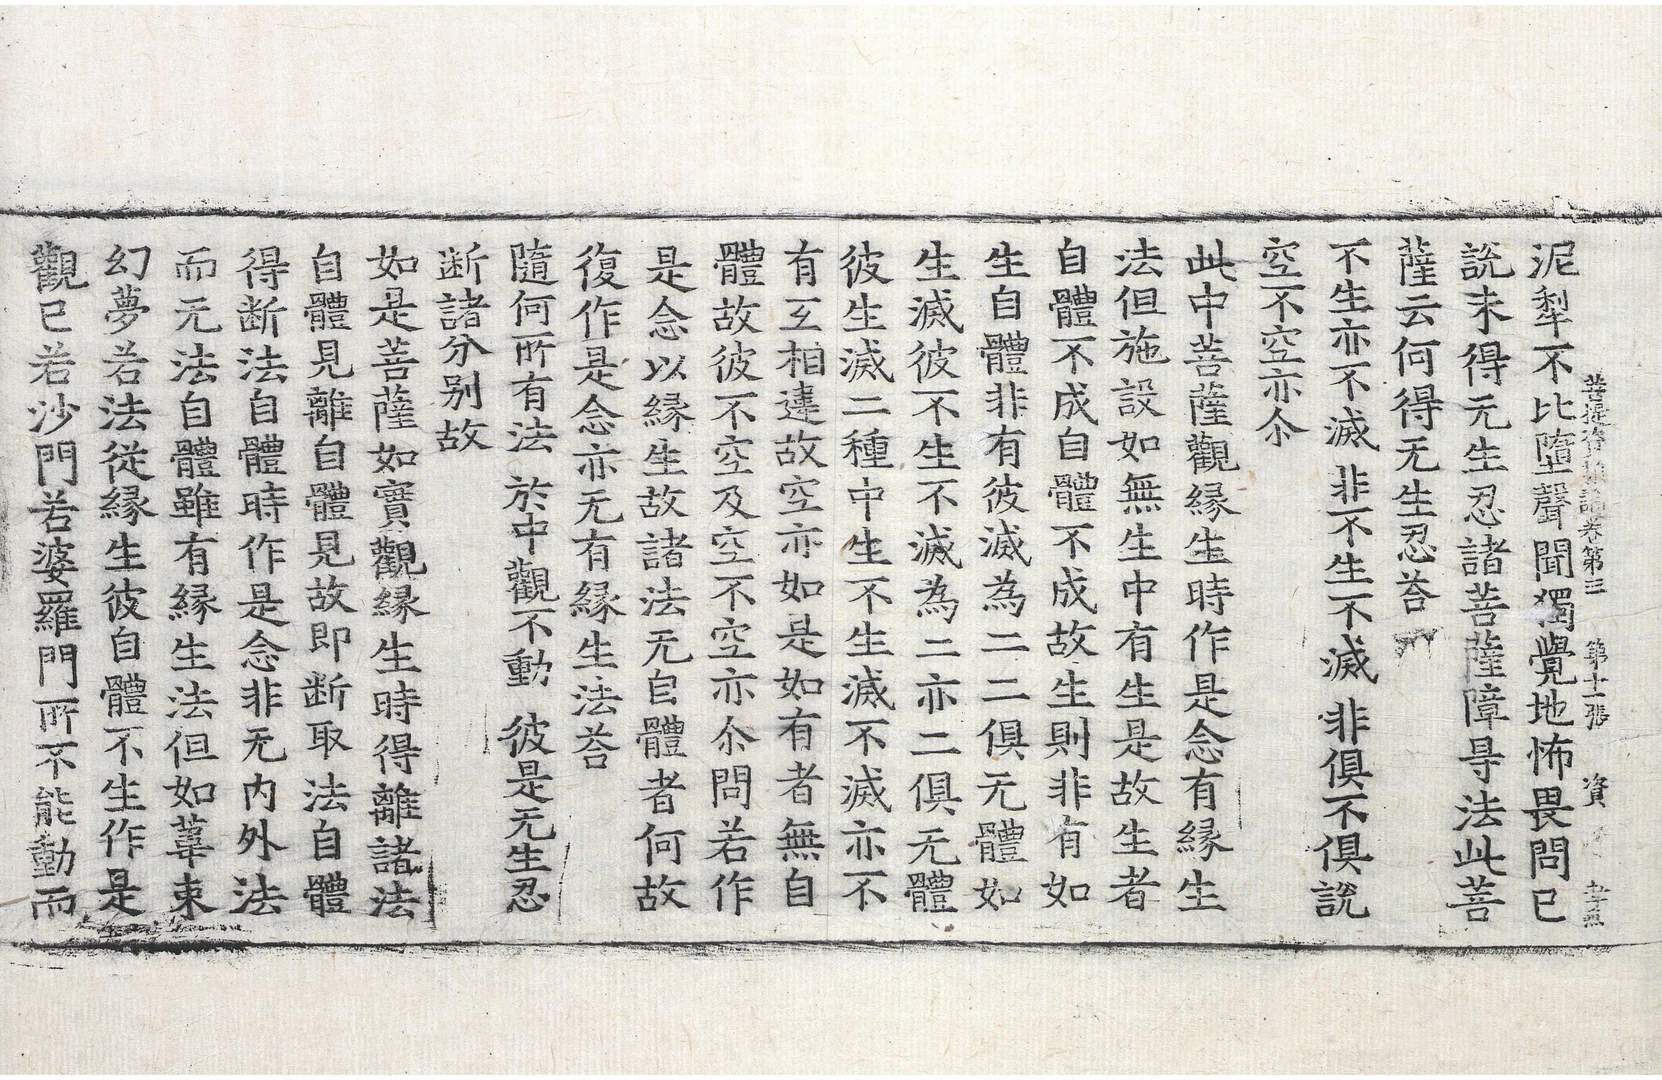 菩提資糧論卷第三 第十二張 資
泥犁不比墮聲聞獨覺地怖畏問已
說未得无生忍諸菩薩障㝵法此菩
薩云何得无生忍荅
不生亦不滅 非不生不滅 非俱不俱說
空不空亦尒
此中菩薩觀緣生時作是念有緣生
法但施設如無生中有生是故生者
自體不成自體不成故生則非有如
生自體非有彼滅為二二俱无體如
生滅彼不生不滅為二亦二俱无體
彼生滅二種中生不生滅不滅亦不
有互相違故空亦如是如有者無自
體故彼不空及空不空亦尒問若作
是念以緣生故諸法无自體者何故
復作是念亦无有緣生法荅
隨何所有法 於中觀不動 彼是无生忍
斷諸分別故
如是菩薩如實觀緣生時得離諸法
自體見離自體見故即斷取法自體
得斷法自體時作是念非无內外法
而无法自體雖有緣生法但如葦束
幻夢若法從緣生彼自體不生作是
觀已若沙門若婆羅門所不能動而